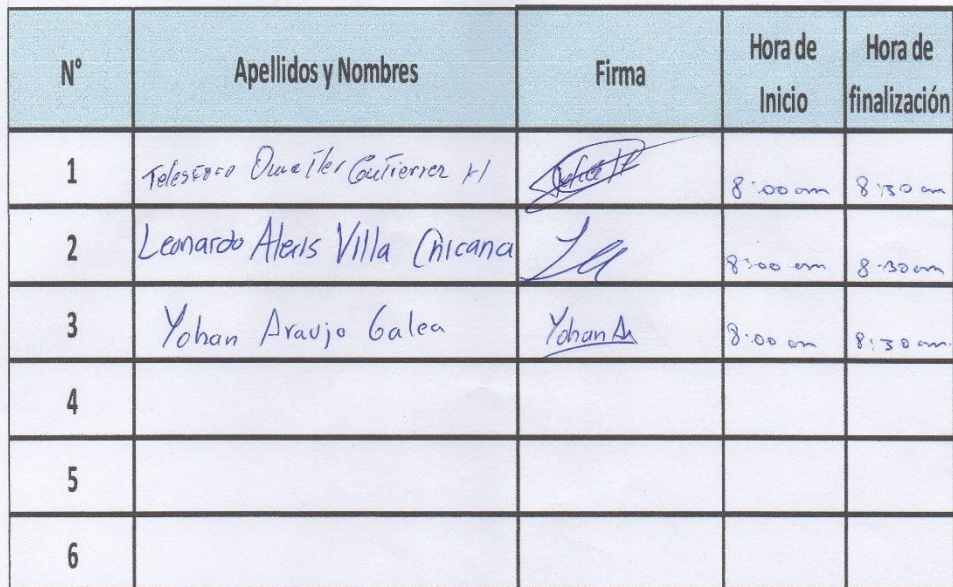 N° Apellidos y Nombres Firma Hora de Inicio Hora de finalización
1 Gutierrez H 8:00 am 8:30 am
2 Leonardo Alexis Villa Chicana 8:00 am 8:30 am
3 Yohan Araujo Galea Yohan Ar 8:00 am 8:30 am
4
5
6